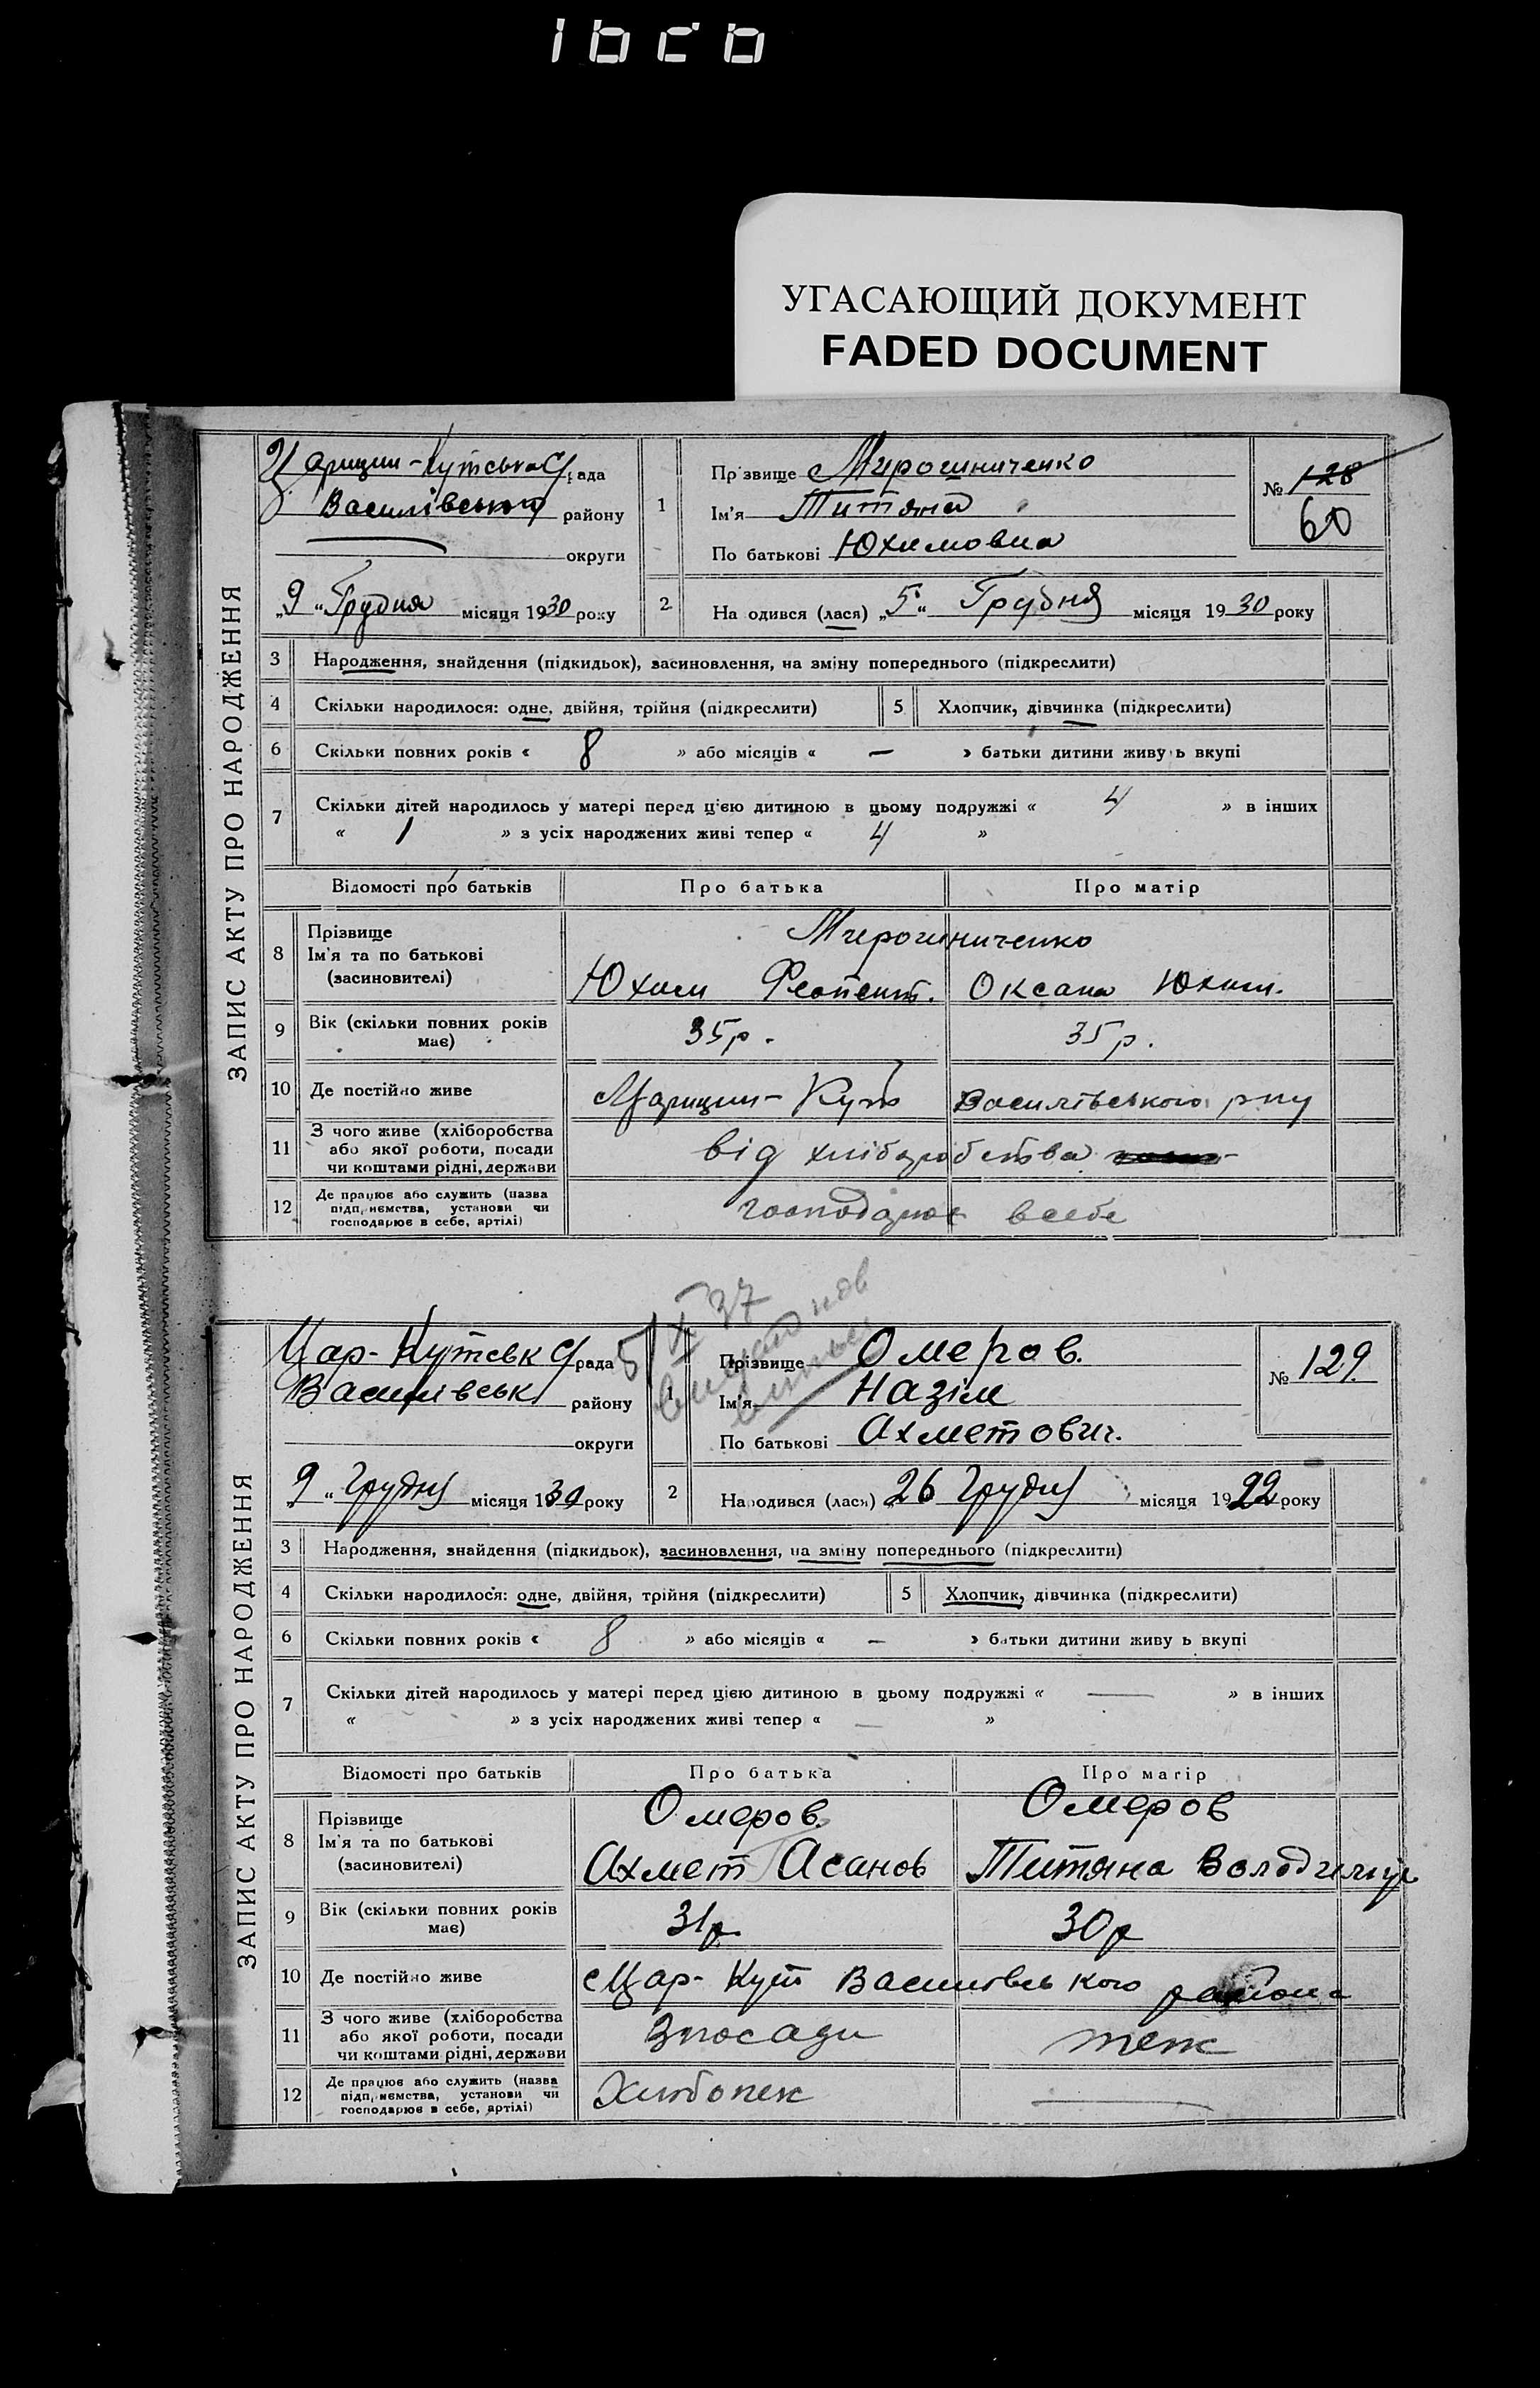 УГАСАЮЩИЙ ДОКУМЕНТ
FADED DOCUMENT
ЗАПИС АКТУ ПРО НАРОДЖЕННЯ
Царицин-Кутська С/рада
Василівського району
округи
„9“ Грудня місяця 1930 року
1
Прізвище Мирошниченко
Ім'я Титяна
По батькові Юхимовна
№ 128
60
2 На одився (лася) „5“ Грудня місяця 1930 року
3 Народження, знайдення (підкидьок), засиновлення, на зміну попереднього (підкреслити)
4 Скільки народилося: одне, двійня, трійня (підкреслити) 5 Хлопчик, дівчинка (підкреслити)
6 Скільки повних років « 8 » або місяців « — » батьки дитини живу ь вкупі
7 Скільки дітей народилось у матері перед цією дитиною в цьому подружжі « 4 » в інших
« 1 » з усіх народжених живі тепер « 4 »
Відомості про батьків Про батька Про матір
8 Прізвище
Ім'я та по батькові
(засиновителі)
Мирошниченко
Юхим Феопент. Оксана Юхим.
9 Вік (скільки повних років має) 35р. 35р.
10 Де постійно живе Царицин-Кут Василівського р-ну
11 З чого живе (хліборобства
або якої роботи, посади
чи коштами рідні, держави
від хліборобства
12 Де працює або служить (назва
підприємства, установи чи
господарює в себе, артілі)
господарює в себе
5/X 37
ЗАПИС АКТУ ПРО НАРОДЖЕННЯ
Цар-Кутськ С/рада
Василівськ району
округи
„9“ Грудня місяця 1930 року
1
Прізвище Омеров.
Ім'я Назім
По батькові Ахметович.
№ 129.
2 Народився (лася) 26 Грудня місяця 1922 року
3 Народження, знайдення (підкидьок), засиновлення, на зміну попереднього (підкреслити)
4 Скільки народилося: одне, двійня, трійня (підкреслити) 5 Хлопчик, дівчинка (підкреслити)
6 Скільки повних років « 8 » або місяців « — » батьки дитини живу ь вкупі
7 Скільки дітей народилось у матері перед цією дитиною в цьому подружжі « — » в інших
« » з усіх народжених живі тепер « — »
Відомості про батьків Про батька Про матір
8 Прізвище
Ім'я та по батькові
(засиновителі)
Омеров. Омеров
Ахмет Асанов Титяна Володимир
9 Вік (скільки повних років має) 31р. 30р
10 Де постійно живе с Цар-Кут Василівського района
11 З чого живе (хліборобства
або якої роботи, посади
чи коштами рідні, держави
З посади теж
12 Де працює або служить (назва
підприємства, установи чи
господарює в себе, артілі)
Хлібопек —